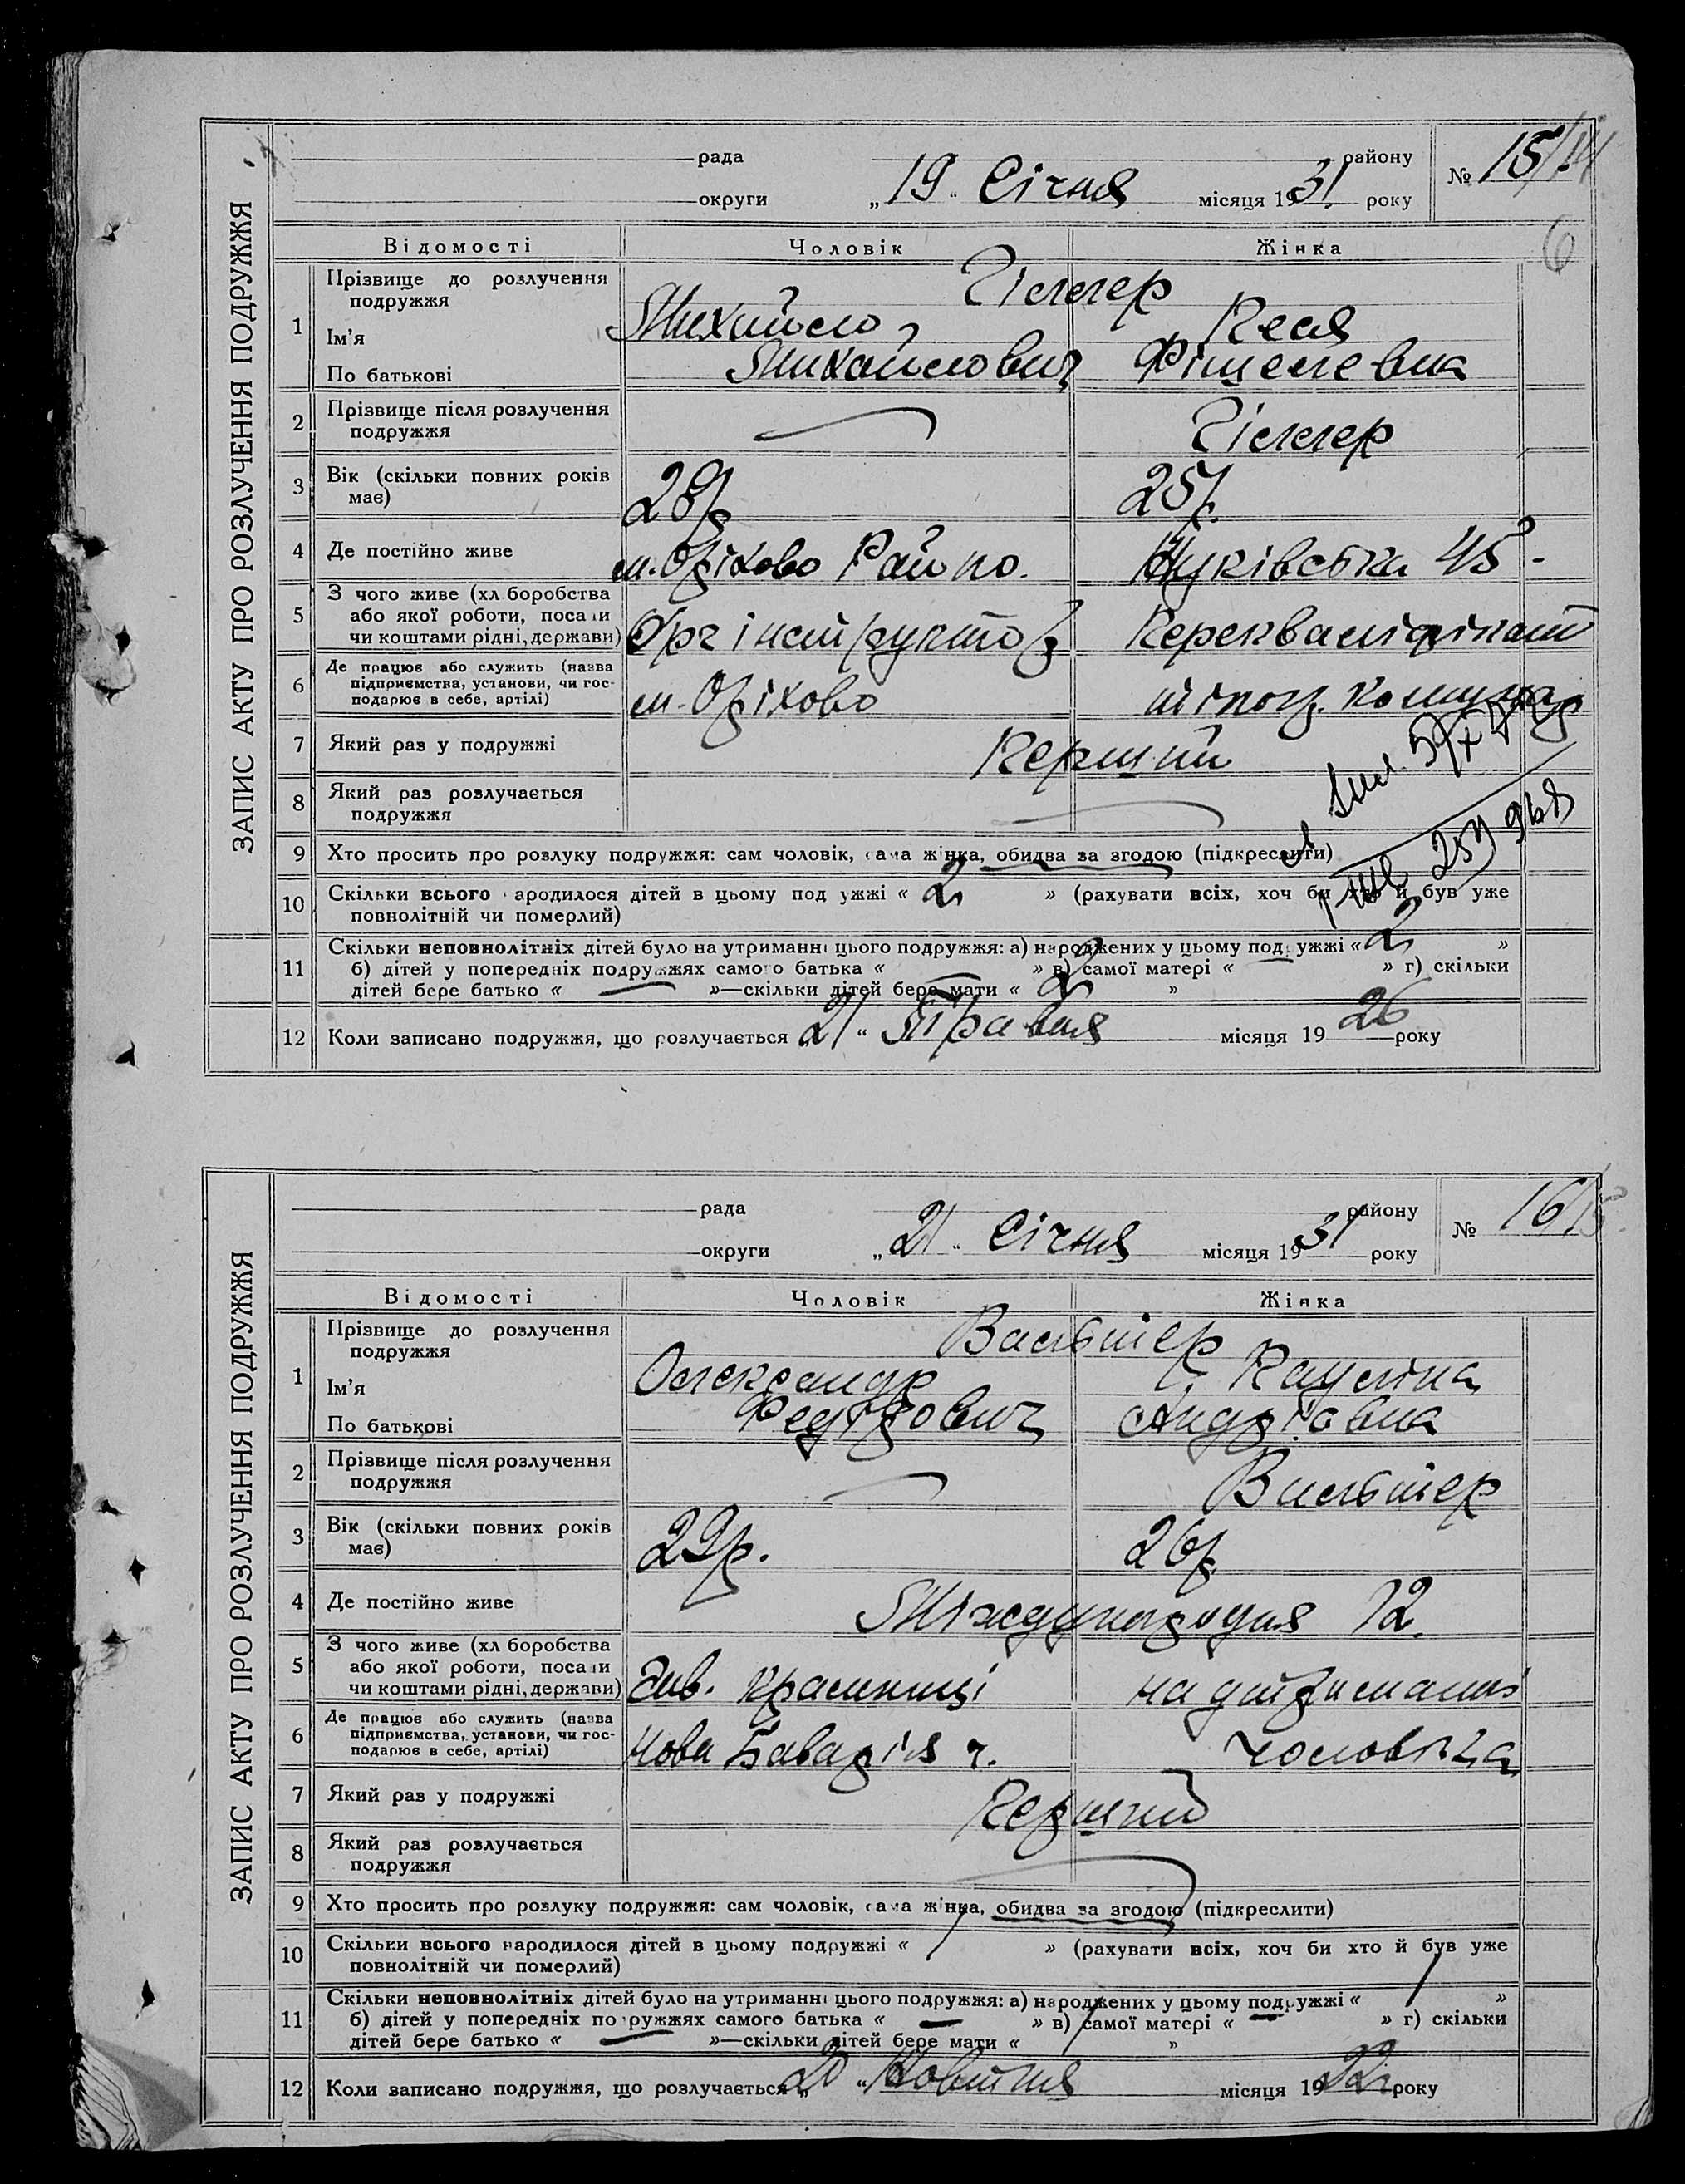 ЗАПИС АКТУ ПРО РОЗЛУЧЕННЯ ПОДРУЖЖЯ
рада району № 15/14
округи „19“ Січня місяця 1931 року
6
Відомості Чоловік Жінка
1 Прізвище до розлучення подружжя Гіллер
Ім'я Михайло Песя
По батькові Михайлович Фішелевна
2 Прізвище після розлучення подружжя — Гіллер
3 Вік (скільки повних років має) 28р 25р.
4 Де постійно живе м. Оріхово Райпо. 45
5 З чого живе (хліборобства або якої роботи, посади чи коштами рідні, держави) Орг інструктор Перекваліфікат
6 Де працює або служить (назва підприємства, установи, чи господарює в себе, артілі) м. Оріхово
7 Який раз у подружжі Перший
8 Який раз розлучається подружжя —
9 Хто просить про розлуку подружжя: сам чоловік, сама жінка, обидва за згодою (підкреслити)
10 Скільки всього народилося дітей в цьому подружжі « 2 » (рахувати всіх, хоч би хто й був уже
повнолітній чи померлий)
11 Скільки неповнолітніх дітей було на утриманні цього подружжя: а) народжених у цьому подружжі « 2 »
б) дітей у попередніх подружжях самого батька « » в) самої матері « — » г) скільки
дітей бере батько « — »—скільки дітей бере мати « 2 »
12 Коли записано подружжя, що розлучається „21“ Травня місяця 1926 року
ЗАПИС АКТУ ПРО РОЗЛУЧЕННЯ ПОДРУЖЖЯ
рада району № 16/15
округи „21“ Січня місяця 1931 року
Відомості Чоловік Жінка
1 Прізвище до розлучення подружжя Вальтер
Ім'я Олександр Пауліна
По батькові Федорович Андріовна
2 Прізвище після розлучення подружжя — Вальтер
3 Вік (скільки повних років має) 29р. 26р.
4 Де постійно живе Міждународня 12.
5 З чого живе (хліборобства або якої роботи, посади чи коштами рідні, держави) Зав. крамниці на утриманні
6 Де працює або служить (назва підприємства, установи, чи господарює в себе, артілі) Нова Баварія чоловіка
7 Який раз у подружжі Перший
8 Який раз розлучається подружжя —
9 Хто просить про розлуку подружжя: сам чоловік, сама жінка, обидва за згодою (підкреслити)
10 Скільки всього народилося дітей в цьому подружжі « 1 » (рахувати всіх, хоч би хто й був уже
повнолітній чи померлий)
11 Скільки неповнолітніх дітей було на утриманні цього подружжя: а) народжених у цьому подружжі « 1 »
б) дітей у попередніх подружжях самого батька « — » в) самої матері « — » г) скільки
дітей бере батько « — »—скільки дітей бере мати « 1 »
12 Коли записано подружжя, що розлучається „20“ Жовтня місяця 1922 року